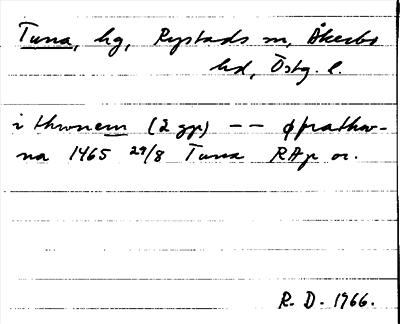 Tuna, hg, Rystads sn, Åkerbo
hd, Östg. l.
i thwnem (2 ggr) -- offrathw-
na 1465 29/8 Tuna RAp or.
R. D. 1966.